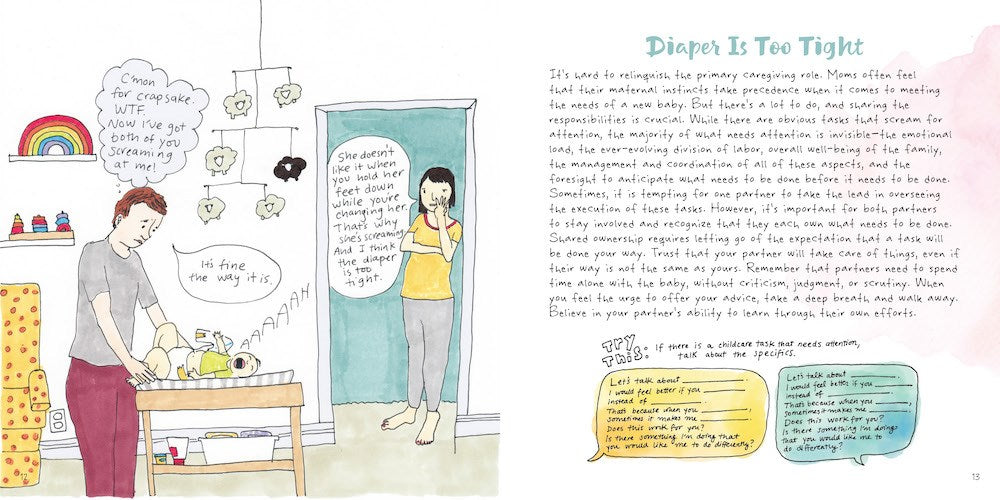 C'mon
for crapsake.
WTF.
Now i've got
both of you
screaming
at me!
It's fine
the way it is.
AAAAAH
She doesn't
like it when
you hold her
feet down
while you're
changing her.
That's why
she's screaming.
And I think
the diaper
is too
tight.
12
Diaper Is Too Tight
It's hard to relinquish the primary caregiving role. Moms often feel
that their maternal instincts take precedence when it comes to meeting
the needs of a new baby. But there's a lot to do, and sharing the
responsibilities is crucial. While there are obvious tasks that scream for
attention, the majority of what needs attention is invisible—the emotional
load, the ever-evolving division of labor, overall well-being of the family,
the management and coordination of all of these aspects, and the
foresight to anticipate what needs to be done before it needs to be done.
Sometimes, it is tempting for one partner to take the lead in overseeing
the execution of these tasks. However, it's important for both partners
to stay involved and recognize that they each own what needs to be done.
Shared ownership requires letting go of the expectation that a task will
be done your way. Trust that your partner will take care of things, even if
their way is not the same as yours. Remember that partners need to spend
time alone with the baby, without criticism, judgment, or scrutiny. When
you feel the urge to offer your advice, take a deep breath and walk away.
Believe in your partner's ability to learn through their own efforts.
TRY
THIS: If there is a childcare task that needs attention,
talk about the specifics.
Let's talk about __________.
I would feel better if you __________
instead of __________.
That's because when you __________,
sometimes it makes me __________.
Does this work for you?
Is there something I'm doing that
you would like me to do differently?
Let's talk about __________.
I would feel better if you __________
instead of __________.
That's because when you __________,
sometimes it makes me __________.
Does this work for you?
Is there something I'm doing
that you would like me to
do differently?
13